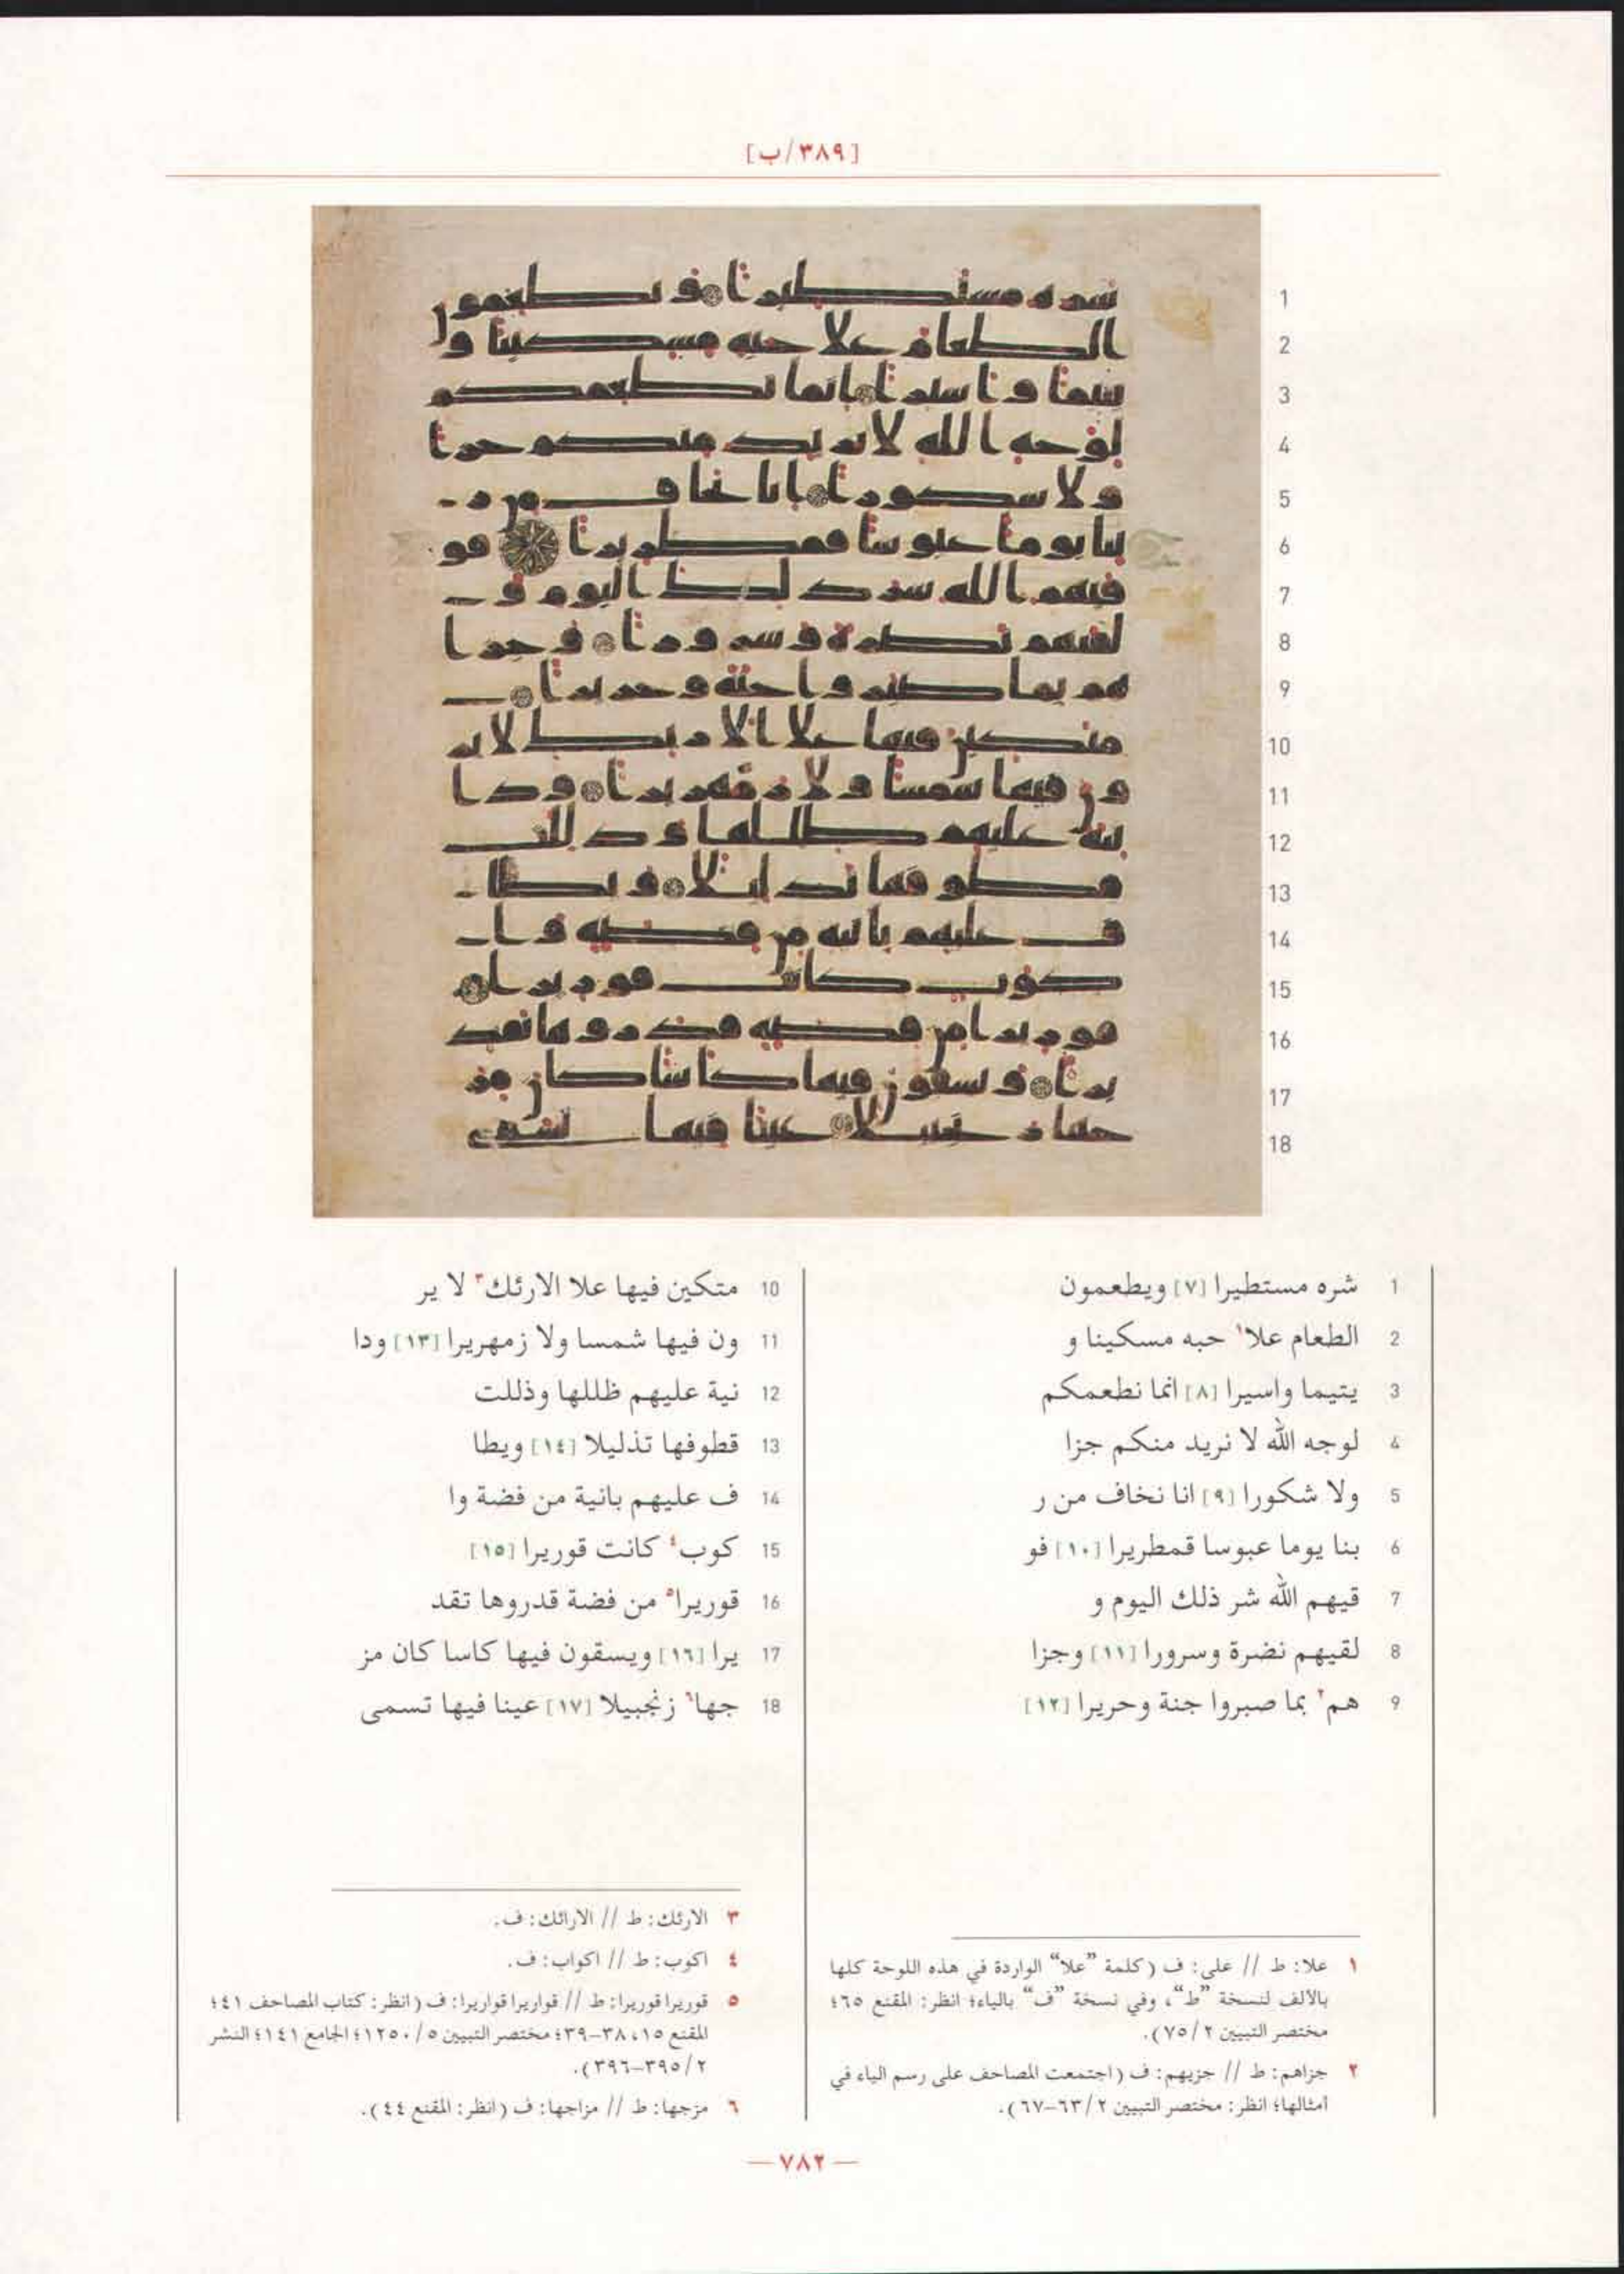 [٣٨٩/ب]
1
2
3
4
5
6
7
8
9
10
11
12
13
14
15
16
17
18
1 شره مستطيرا [٧] ويطعمون
2 الطعام علا١ حبه مسكينا و
3 يتيما واسيرا [٨] انما نطعمكم
4 لوجه الله لا نريد منكم جزا
5 ولا شكورا [٩] انا نخاف من ر
6 بنا يوما عبوسا قمطريرا [١٠] فو
7 قيهم الله شر ذلك اليوم و
8 لقيهم نضرة وسرورا [١١] وجزا
9 هم٢ بما صبروا جنة وحريرا [١٢]
10 متكين فيها علا الارئك٣ لا ير
11 ون فيها شمسا ولا زمهريرا [١٣] ودا
12 نية عليهم ظللها وذللت
13 قطوفها تذليلا [١٤] ويطا
14 ف عليهم بانية من فضة وا
15 كوب٤ كانت قوريرا [١٥]
16 قوريرا٥ من فضة قدروها تقد
17 يرا [١٦] ويسقون فيها كاسا كان مز
18 جها٦ زنجبيلا [١٧] عينا فيها تسمى
١ علا: ط // على: ف (كلمة ”علا“ الواردة في هذه اللوحة كلها
بالألف لنسخة ”ط“، وفي نسخة ”ف“ بالياء؛ انظر: المقنع ٦٥؛
مختصر التبيين ٢/ ٧٥).
٢ جزاهم: ط // جزيهم: ف (اجتمعت المصاحف على رسم الياء في
أمثالها؛ انظر: مختصر التبيين ٢/ ٦٣–٦٧).
٣ الارئك: ط // الارائك: ف.
٤ اكوب: ط // اكواب: ف.
٥ قوريرا قوريرا: ط // قواريرا قواريرا: ف (انظر: كتاب المصاحف ٤١؛
المقنع ١٥، ٣٨–٣٩؛ مختصر التبيين ٥/ ١٢٥٠؛ الجامع ١٤١؛ النشر
٢/ ٣٩٥–٣٩٦).
٦ مزجها: ط // مزاجها: ف (انظر: المقنع ٤٤).
— ٧٨٢ —